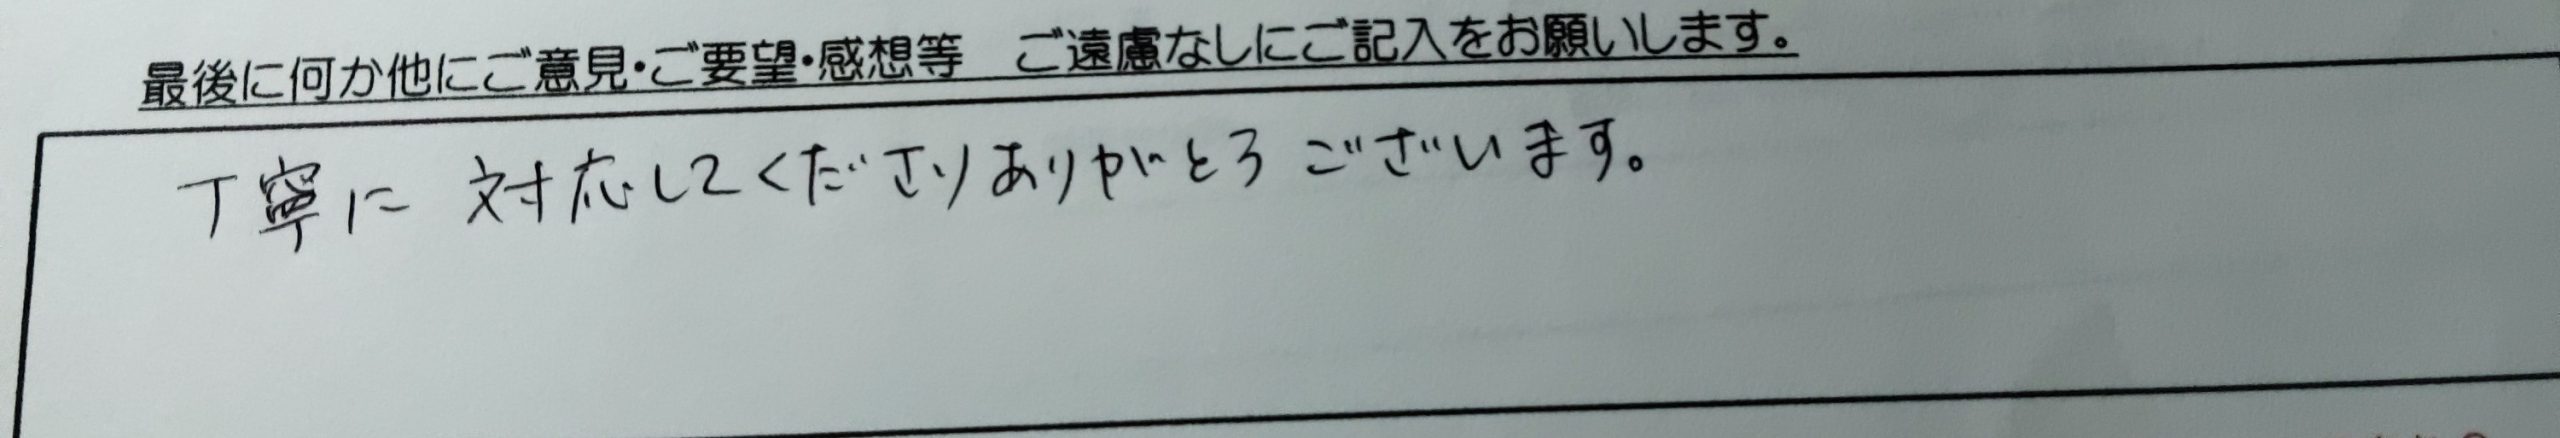 最後に何か他にご意見・ご要望・感想等　ご遠慮なしにご記入をお願いします。
丁寧に対応してくださりありがとうございます。